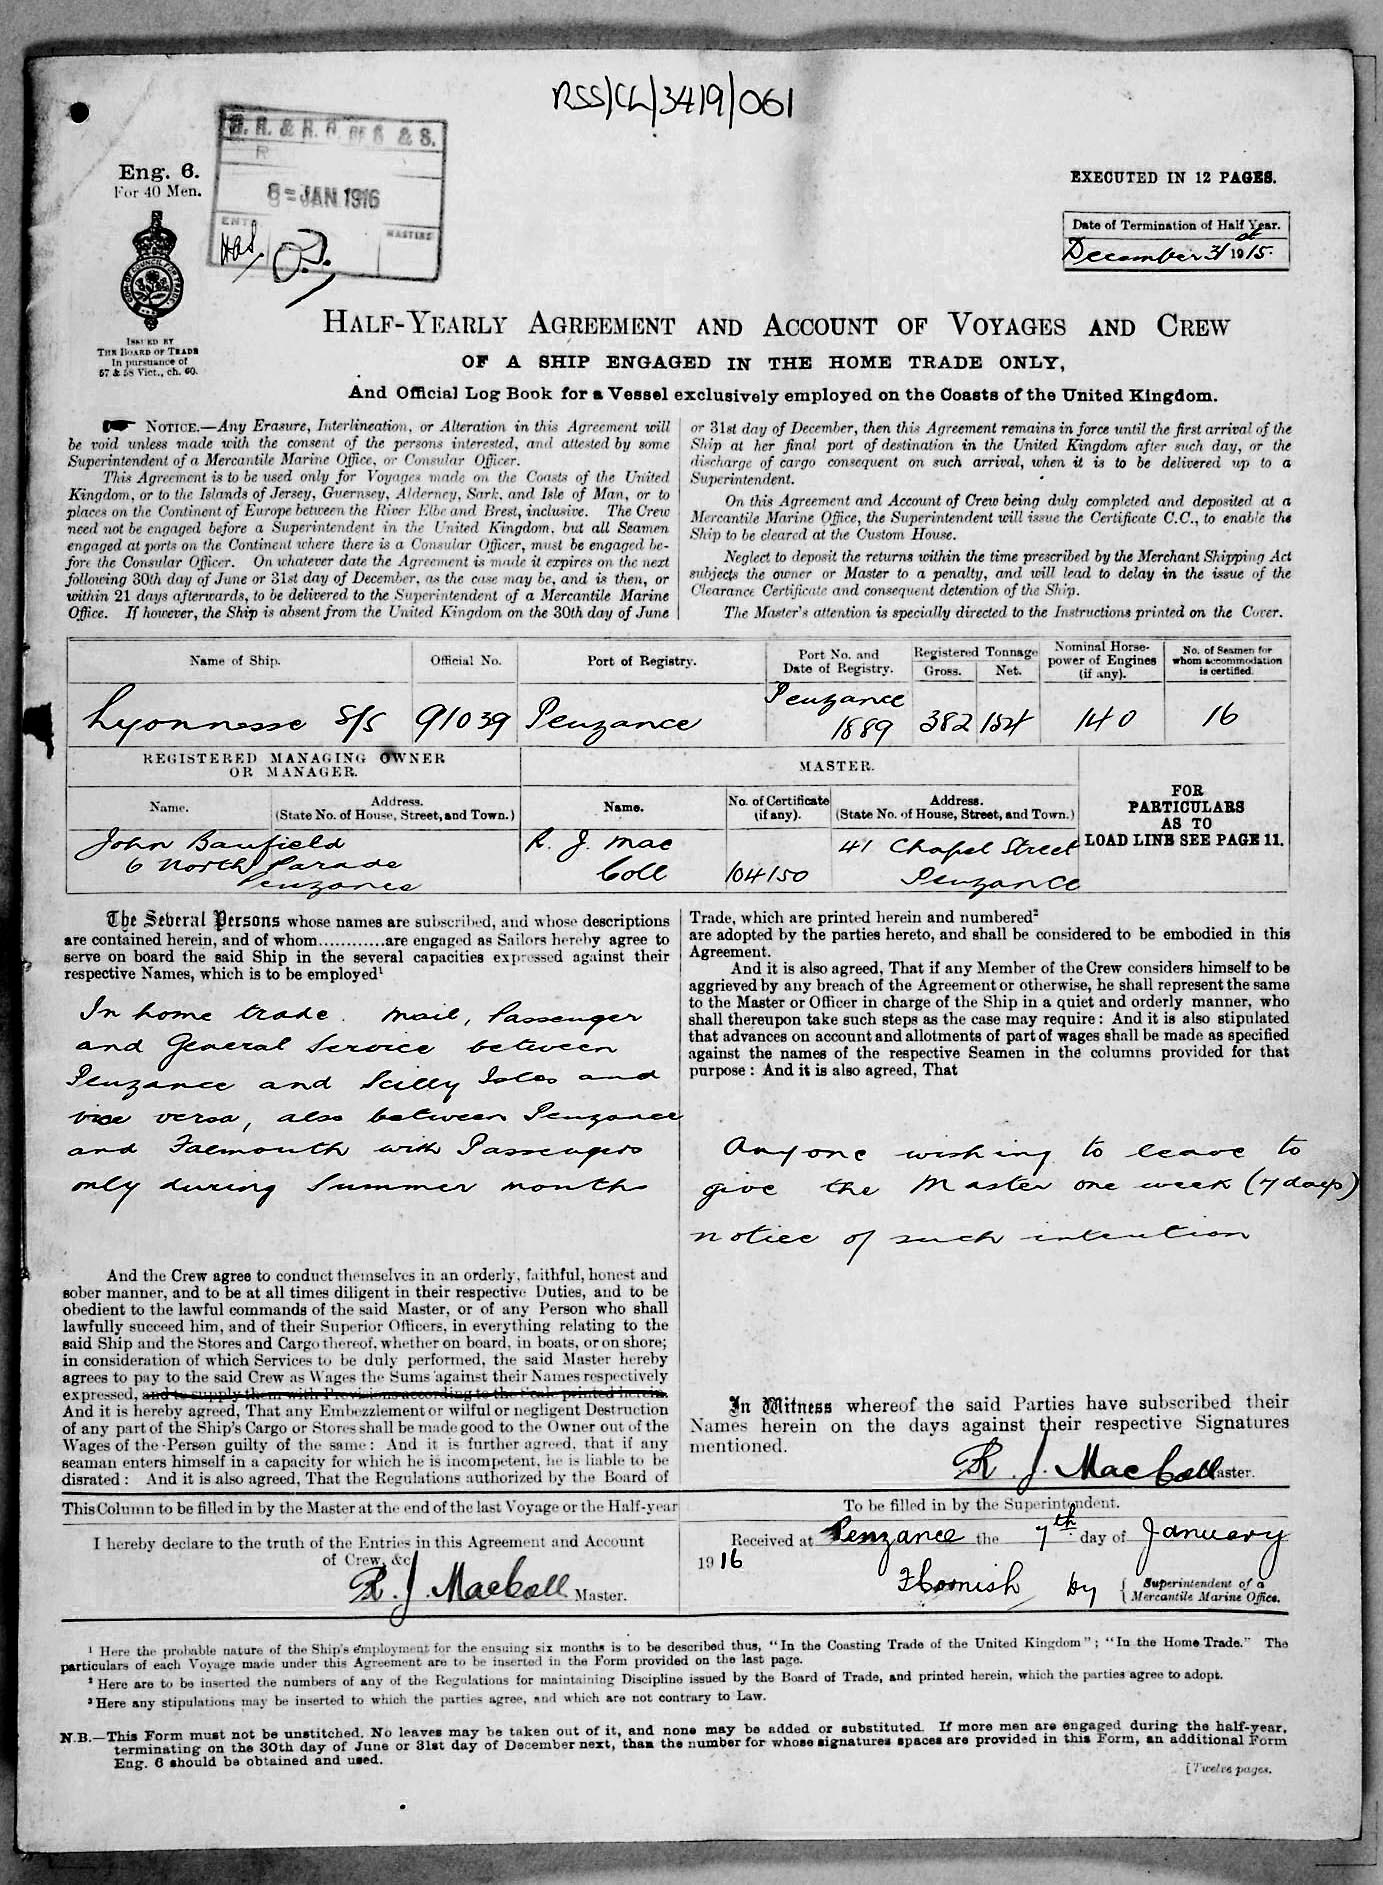 RSS/CL/3419/061
8 = JAN 1916
Eng. 6.
For 40 Men.
EXECUTED IN 12 PAGES.
Date of Termination of Half Year.
December 31st 1915.
ISSUED BY
THE BOARD OF TRADE
In pursuance of
57 & 58 Vict., ch. 60.
HALF-YEARLY AGREEMENT AND ACCOUNT OF VOYAGES AND CREW
OF A SHIP ENGAGED IN THE HOME TRADE ONLY,
And Official Log Book for a Vessel exclusively employed on the Coasts of the United Kingdom.
NOTICE.—Any Erasure, Interlineation, or Alteration in this Agreement will
be void unless made with the consent of the persons interested, and attested by some
Superintendent of a Mercantile Marine Office, or Consular Officer.
This Agreement is to be used only for Voyages made on the Coasts of the United
Kingdom, or to the Islands of Jersey, Guernsey, Alderney, Sark, and Isle of Man, or to
places on the Continent of Europe between the River Elbe and Brest, inclusive. The Crew
need not be engaged before a Superintendent in the United Kingdom, but all Seamen
engaged at ports on the Continent where there is a Consular Officer, must be engaged be-
fore the Consular Officer. On whatever date the Agreement is made it expires on the next
following 30th day of June or 31st day of December, as the case may be, and is then, or
within 21 days afterwards, to be delivered to the Superintendent of a Mercantile Marine
Office. If however, the Ship is absent from the United Kingdom on the 30th day of June
or 31st day of December, then this Agreement remains in force until the first arrival of the
Ship at her final port of destination in the United Kingdom after such day, or the
discharge of cargo consequent on such arrival, when it is to be delivered up to a
Superintendent.
On this Agreement and Account of Crew being duly completed and deposited at a
Mercantile Marine Office, the Superintendent will issue the Certificate C.C., to enable the
Ship to be cleared at the Custom House.
Neglect to deposit the returns within the time prescribed by the Merchant Shipping Act
subjects the owner or Master to a penalty, and will lead to delay in the issue of the
Clearance Certificate and consequent detention of the Ship.
The Master's attention is specially directed to the Instructions printed on the Cover.
Name of Ship.
Official No.
Port of Registry.
Port No. and
Date of Registry.
Registered Tonnage
Gross.
Net.
Nominal Horse-
power of Engines
(if any).
No. of Seamen for
whom accommodation
is certified.
Lyonnesse S/S
91039
Penzance
Penzance
1889
382
154
140
16
REGISTERED MANAGING OWNER
OR MANAGER.
MASTER.
Name.
Address.
(State No. of House, Street, and Town.)
Name.
No. of Certificate
(if any).
Address.
(State No. of House, Street, and Town.)
FOR
PARTICULARS
AS TO
LOAD LINE SEE PAGE 11.
John Banfield
6 North Parade
Penzance
R. J. Mac
Coll
104150
41 Chapel Street
Penzance
The Several Persons whose names are subscribed, and whose descriptions
are contained herein, and of whom............are engaged as Sailors hereby agree to
serve on board the said Ship in the several capacities expressed against their
respective Names, which is to be employed¹
In home trade. Mail, Passenger
and General Service between
Penzance and Scilly Isles and
vice versa, also between Penzance
and Falmouth with Passengers
only during Summer months
And the Crew agree to conduct themselves in an orderly, faithful, honest and
sober manner, and to be at all times diligent in their respective Duties, and to be
obedient to the lawful commands of the said Master, or of any Person who shall
lawfully succeed him, and of their Superior Officers, in everything relating to the
said Ship and the Stores and Cargo thereof, whether on board, in boats, or on shore;
in consideration of which Services to be duly performed, the said Master hereby
agrees to pay to the said Crew as Wages the Sums against their Names respectively
expressed, and to supply them with Provisions according to the Scale printed herein.
And it is hereby agreed, That any Embezzlement or wilful or negligent Destruction
of any part of the Ship's Cargo or Stores shall be made good to the Owner out of the
Wages of the Person guilty of the same: And it is further agreed, that if any
seaman enters himself in a capacity for which he is incompetent, he is liable to be
disrated: And it is also agreed, That the Regulations authorized by the Board of
Trade, which are printed herein and numbered²
are adopted by the parties hereto, and shall be considered to be embodied in this
Agreement.
And it is also agreed, That if any Member of the Crew considers himself to be
aggrieved by any breach of the Agreement or otherwise, he shall represent the same
to the Master or Officer in charge of the Ship in a quiet and orderly manner, who
shall thereupon take such steps as the case may require: And it is also stipulated
that advances on account and allotments of part of wages shall be made as specified
against the names of the respective Seamen in the columns provided for that
purpose: And it is also agreed, That
Anyone wishing to leave to
give the Master one week (7 days)
notice of such intention
In Witness whereof the said Parties have subscribed their
Names herein on the days against their respective Signatures
mentioned.
R. J. MacColl Master.
This Column to be filled in by the Master at the end of the last Voyage or the Half-year
I hereby declare to the truth of the Entries in this Agreement and Account
of Crew, &c
R. J. MacColl Master.
To be filled in by the Superintendent.
Received at Penzance the 7th day of January
1916
Superintendent of a
Mercantile Marine Office.
¹ Here the probable nature of the Ship's employment for the ensuing six months is to be described thus, "In the Coasting Trade of the United Kingdom"; "In the Home Trade." The
particulars of each Voyage made under this Agreement are to be inserted in the Form provided on the last page.
² Here are to be inserted the numbers of any of the Regulations for maintaining Discipline issued by the Board of Trade, and printed herein, which the parties agree to adopt.
³ Here any stipulations may be inserted to which the parties agree, and which are not contrary to Law.
N.B.—This Form must not be unstitched. No leaves may be taken out of it, and none may be added or substituted. If more men are engaged during the half-year,
terminating on the 30th day of June or 31st day of December next, than the number for whose signatures spaces are provided in this Form, an additional Form
Eng. 6 should be obtained and used.
[Twelve pages.